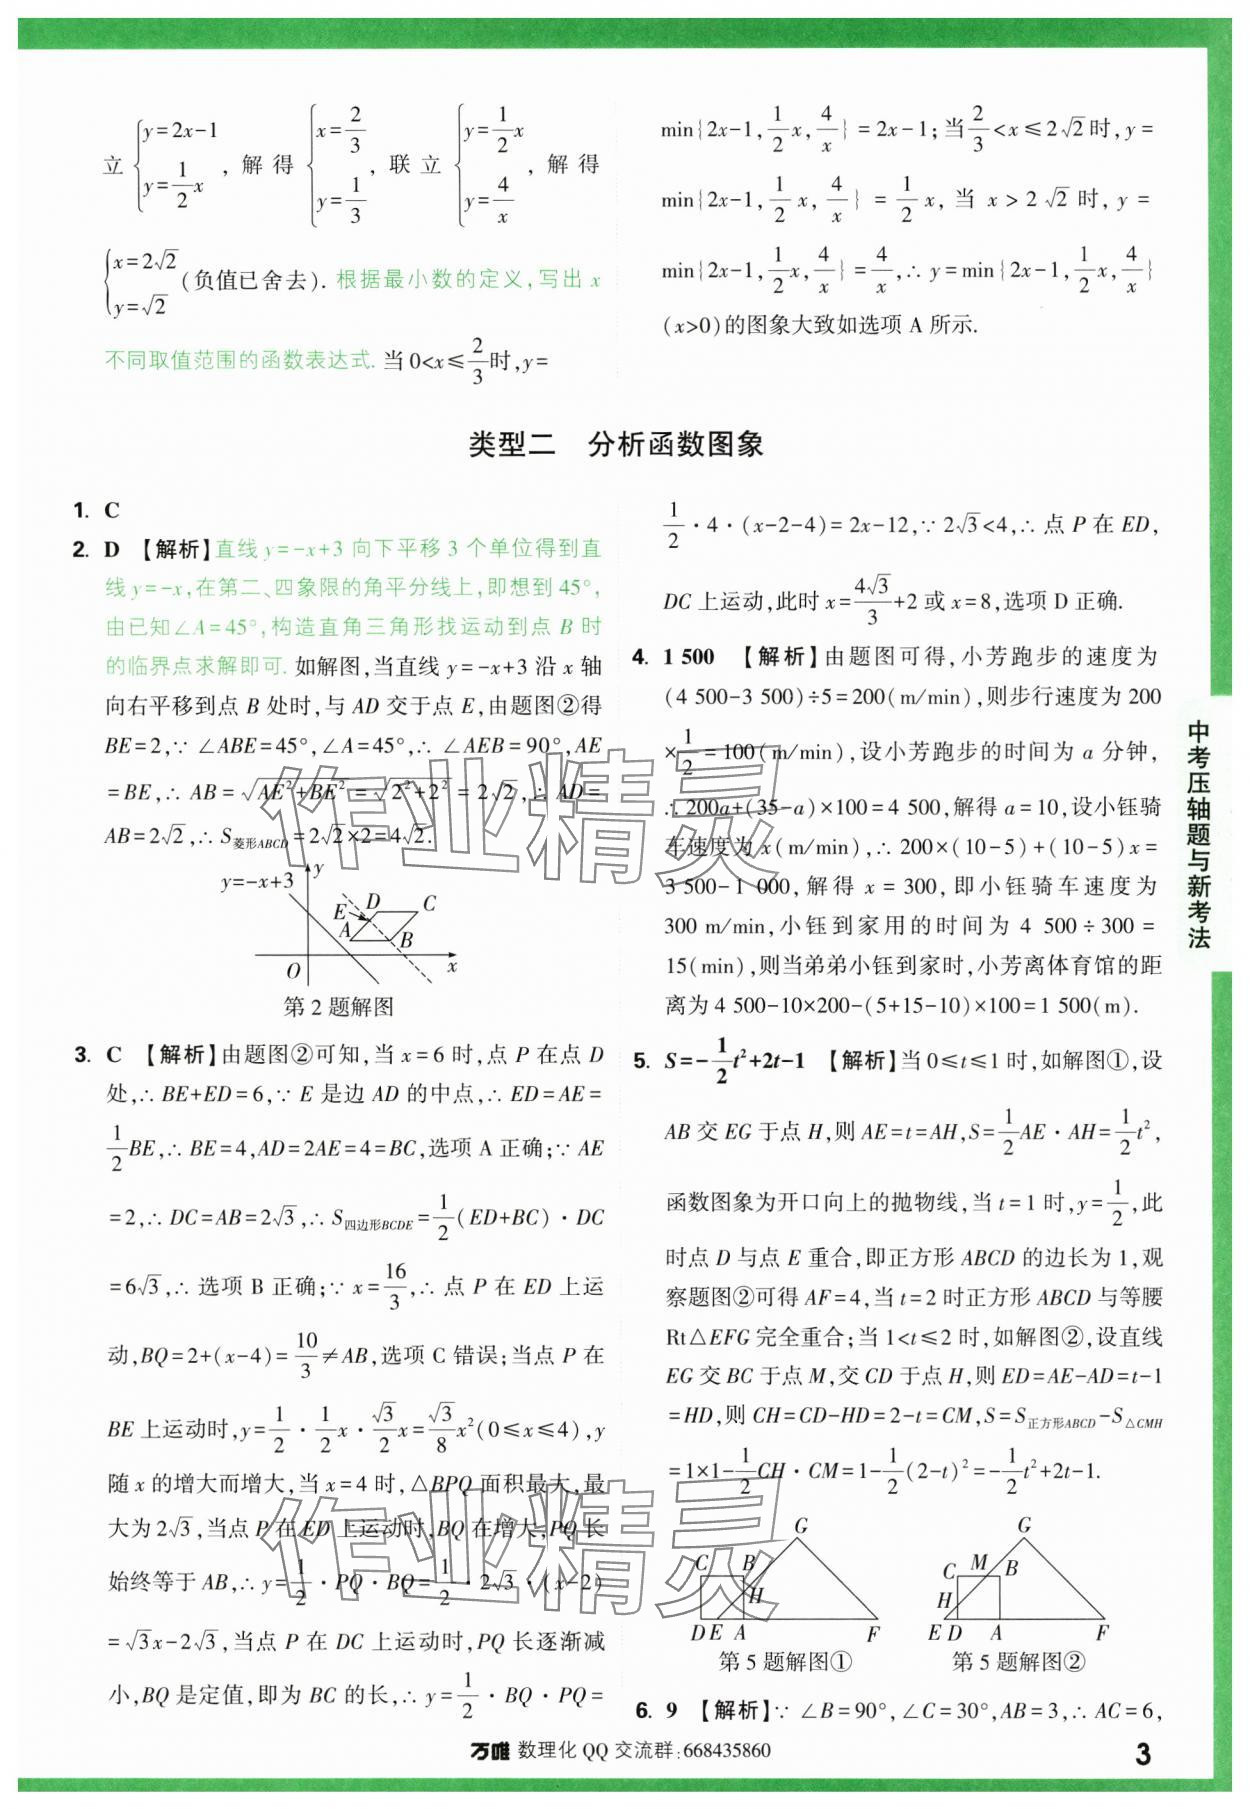 立{y=2x-1, y=1/2 x, 解得{x=2/3, y=1/3, 联立{y=1/2 x, y=4/x, 解得
{x=2√2, y=√2 (负值已舍去). 根据最小数的定义,写出 x
不同取值范围的函数表达式. 当 0<x≤2/3时,y=
min{2x-1,1/2 x,4/x}=2x-1;当2/3<x≤2√2时,y=
min{2x-1,1/2 x,4/x}=1/2 x,当 x>2√2时,y=
min{2x-1,1/2 x,4/x}=4/x,∴y=min{2x-1,1/2 x,4/x}
(x>0)的图象大致如选项 A 所示.
类型二 分析函数图象
1. C
2. D 【解析】直线 y=-x+3 向下平移 3 个单位得到直
线 y=-x,在第二、四象限的角平分线上,即想到 45°,
由已知∠A=45°,构造直角三角形找运动到点 B 时
的临界点求解即可. 如解图,当直线 y=-x+3 沿 x 轴
向右平移到点 B 处时,与 AD 交于点 E,由题图②得
BE=2,∵∠ABE=45°,∠A=45°,∴∠AEB=90°,AE
=BE,∴AB=√(AE²+BE²)=√(2²+2²)=2√2,∴AD=
AB=2√2,∴S菱形ABCD=2√2×2=4√2.
y=-x+3
y
E
D
C
A
B
O
x
第 2 题解图
3. C 【解析】由题图②可知,当 x=6 时,点 P 在点 D
处,∴BE+ED=6,∵E 是边 AD 的中点,∴ED=AE=
1/2 BE,∴BE=4,AD=2AE=4=BC,选项 A 正确;∵AE
=2,∴DC=AB=2√3,∴S四边形BCDE=1/2(ED+BC)·DC
=6√3,∴选项 B 正确;∵x=16/3,∴点 P 在 ED 上运
动,BQ=2+(x-4)=10/3≠AB,选项 C 错误;当点 P 在
BE 上运动时,y=1/2·1/2 x·√3/2 x=√3/8 x²(0≤x≤4),y
随 x 的增大而增大,当 x=4 时,△BPQ 面积最大,最
大为 2√3,当点 P 在 ED 上运动时,BQ 在增大,PQ 长
始终等于 AB,∴y=1/2·PQ·BQ=1/2·2√3·(x-2)
=√3x-2√3,当点 P 在 DC 上运动时,PQ 长逐渐减
小,BQ 是定值,即为 BC 的长,∴y=1/2·BQ·PQ=
1/2·4·(x-2-4)=2x-12,∵2√3<4,∴点 P 在 ED,
DC 上运动,此时 x=4√3/3+2 或 x=8,选项 D 正确.
4. 1 500 【解析】由题图可得,小芳跑步的速度为
(4 500-3 500)÷5=200(m/min),则步行速度为 200
×1/2=100(m/min),设小芳跑步的时间为 a 分钟,
∴200a+(35-a)×100=4 500,解得 a=10,设小钰骑
车速度为 x(m/min),∴200×(10-5)+(10-5)x=
3 500-1 000,解得 x=300,即小钰骑车速度为
300 m/min,小钰到家用的时间为 4 500÷300=
15(min),则当弟弟小钰到家时,小芳离体育馆的距
离为 4 500-10×200-(5+15-10)×100=1 500(m).
5. S=-1/2 t²+2t-1 【解析】当 0≤t≤1 时,如解图①,设
AB 交 EG 于点 H,则 AE=t=AH,S=1/2 AE·AH=1/2 t²,
函数图象为开口向上的抛物线,当 t=1 时,y=1/2,此
时点 D 与点 E 重合,即正方形 ABCD 的边长为 1,观
察题图②可得 AF=4,当 t=2 时正方形 ABCD 与等腰
Rt△EFG 完全重合;当 1<t≤2 时,如解图②,设直线
EG 交 BC 于点 M,交 CD 于点 H,则 ED=AE-AD=t-1
=HD,则 CH=CD-HD=2-t=CM,S=S正方形ABCD-S△CMH
=1×1-1/2 CH·CM=1-1/2(2-t)²=-1/2 t²+2t-1.
G
C
B
H
D E A
F
第 5 题解图①
G
C
M
B
H
E D A
F
第 5 题解图②
6. 9 【解析】∵∠B=90°,∠C=30°,AB=3,∴AC=6,
中考压轴题与新考法
万唯 数理化 QQ 交流群:668435860
3
作业精灵
作业精灵